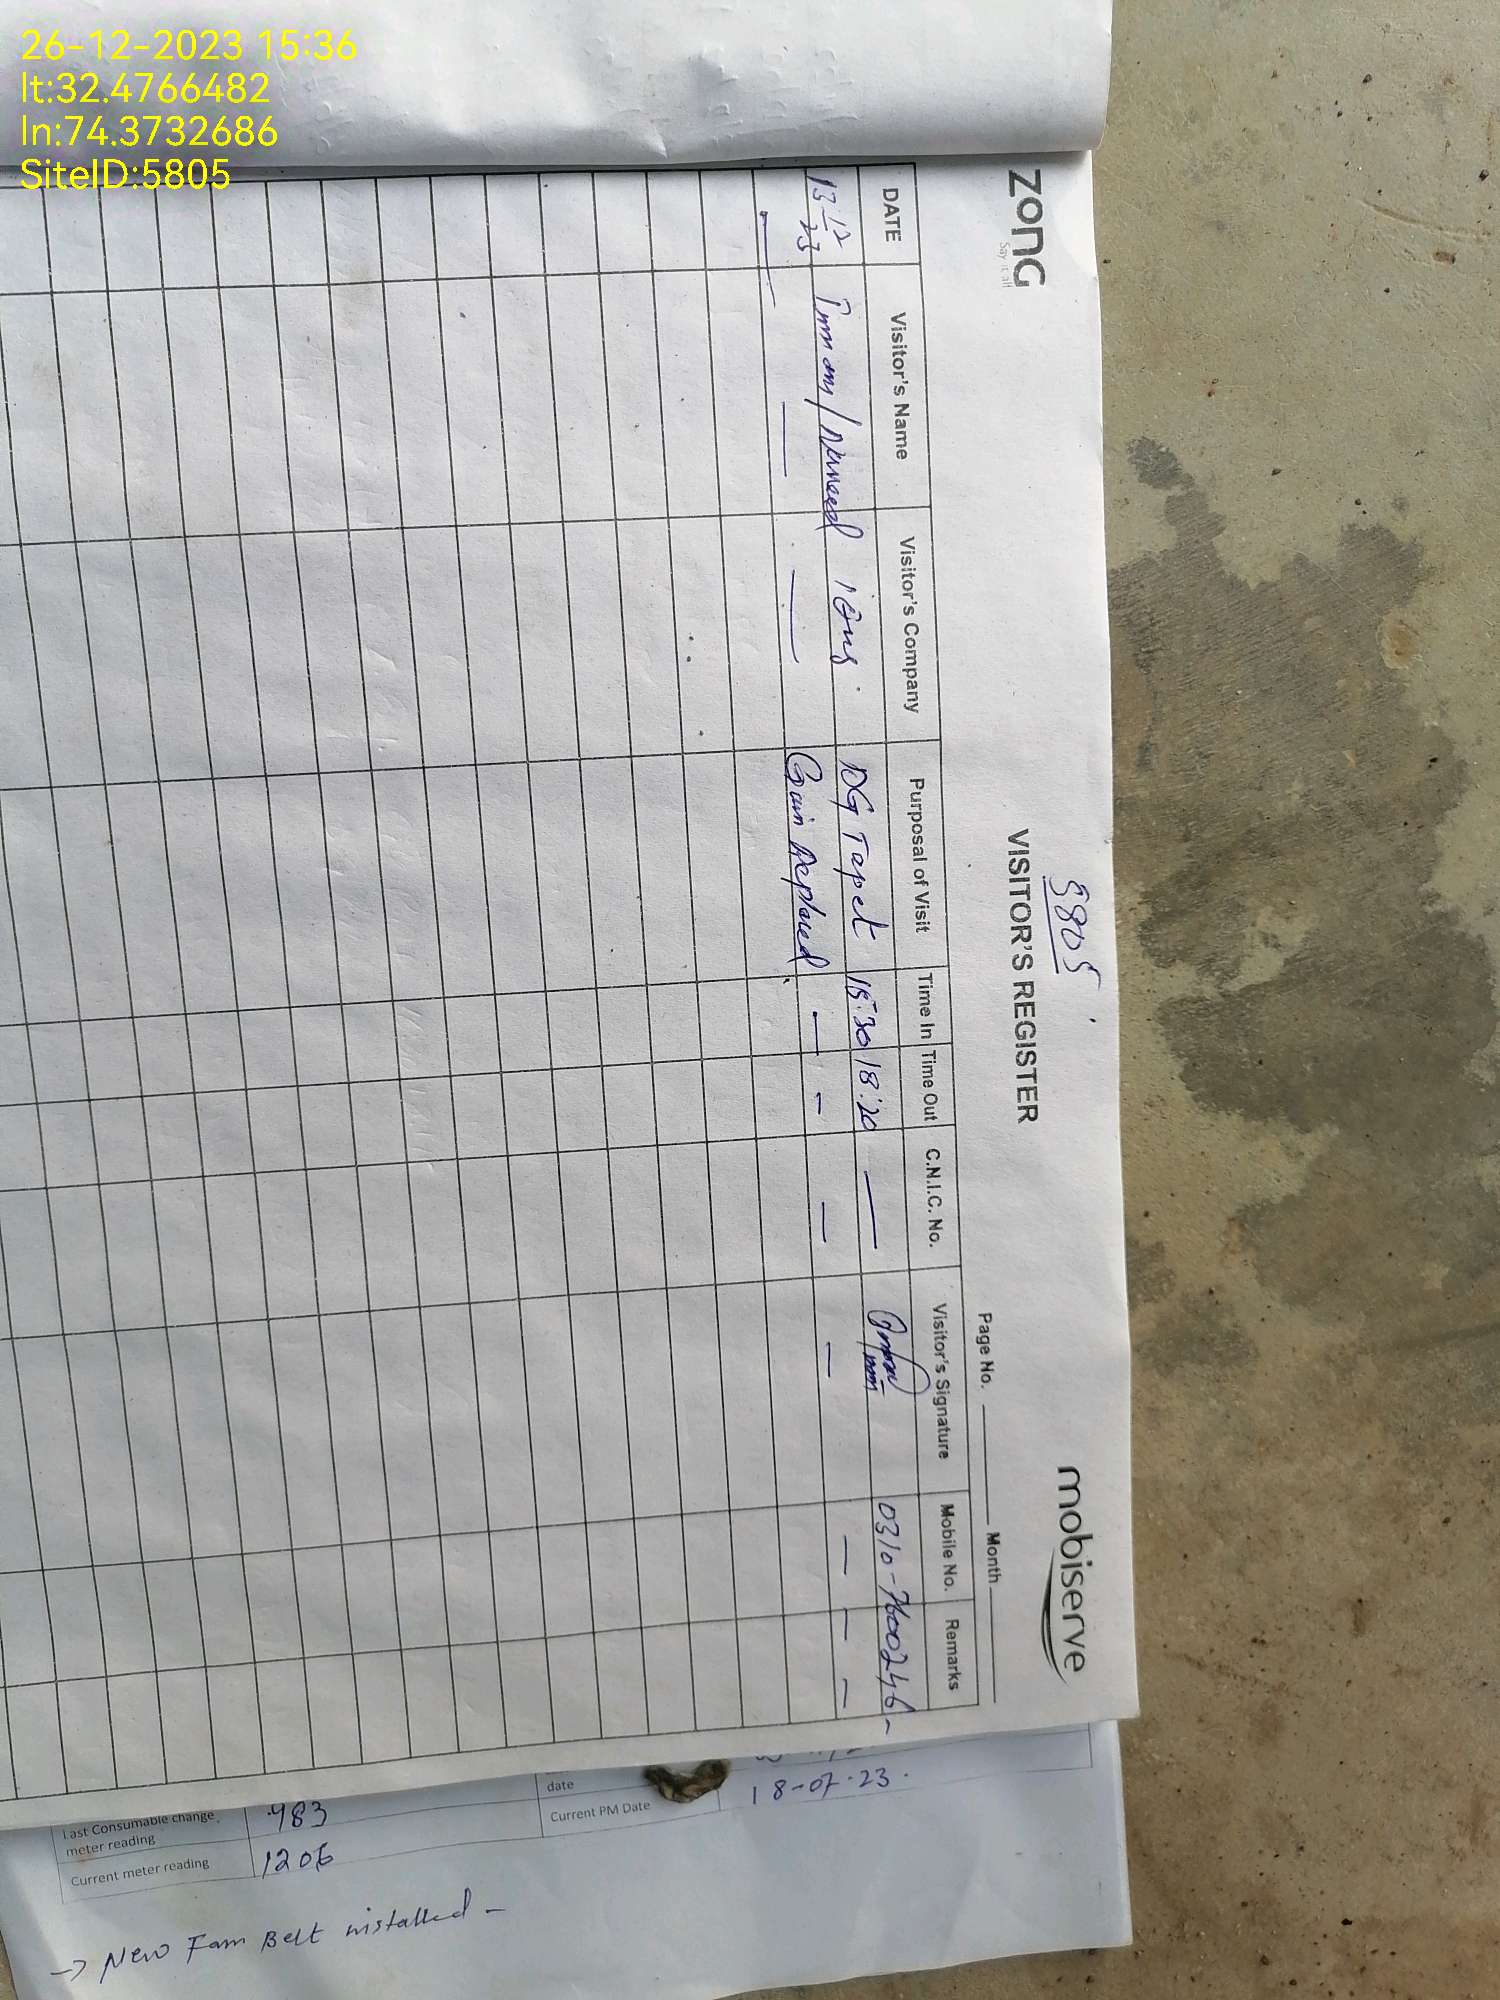 26-12-2023 15:36
lt:32.4766482
ln:74.3732686
SiteID:5805
zonG
Say it all
5805
VISITOR'S REGISTER
mobiserve
Page No. Month
DATE Visitor's Name Visitor's Company Purposal of Visit Time In Time Out C.N.I.C. No. Visitor's Signature Mobile No. Remarks
13-12 DG Tapet 15:30 18:20 — 0310-7600246-
23
— — — Replaced — — — — — — —
date
18-07-23.
Last Consumable change
meter reading
983
Current PM Date
Current meter reading 1206
-> New Fam Belt installed -